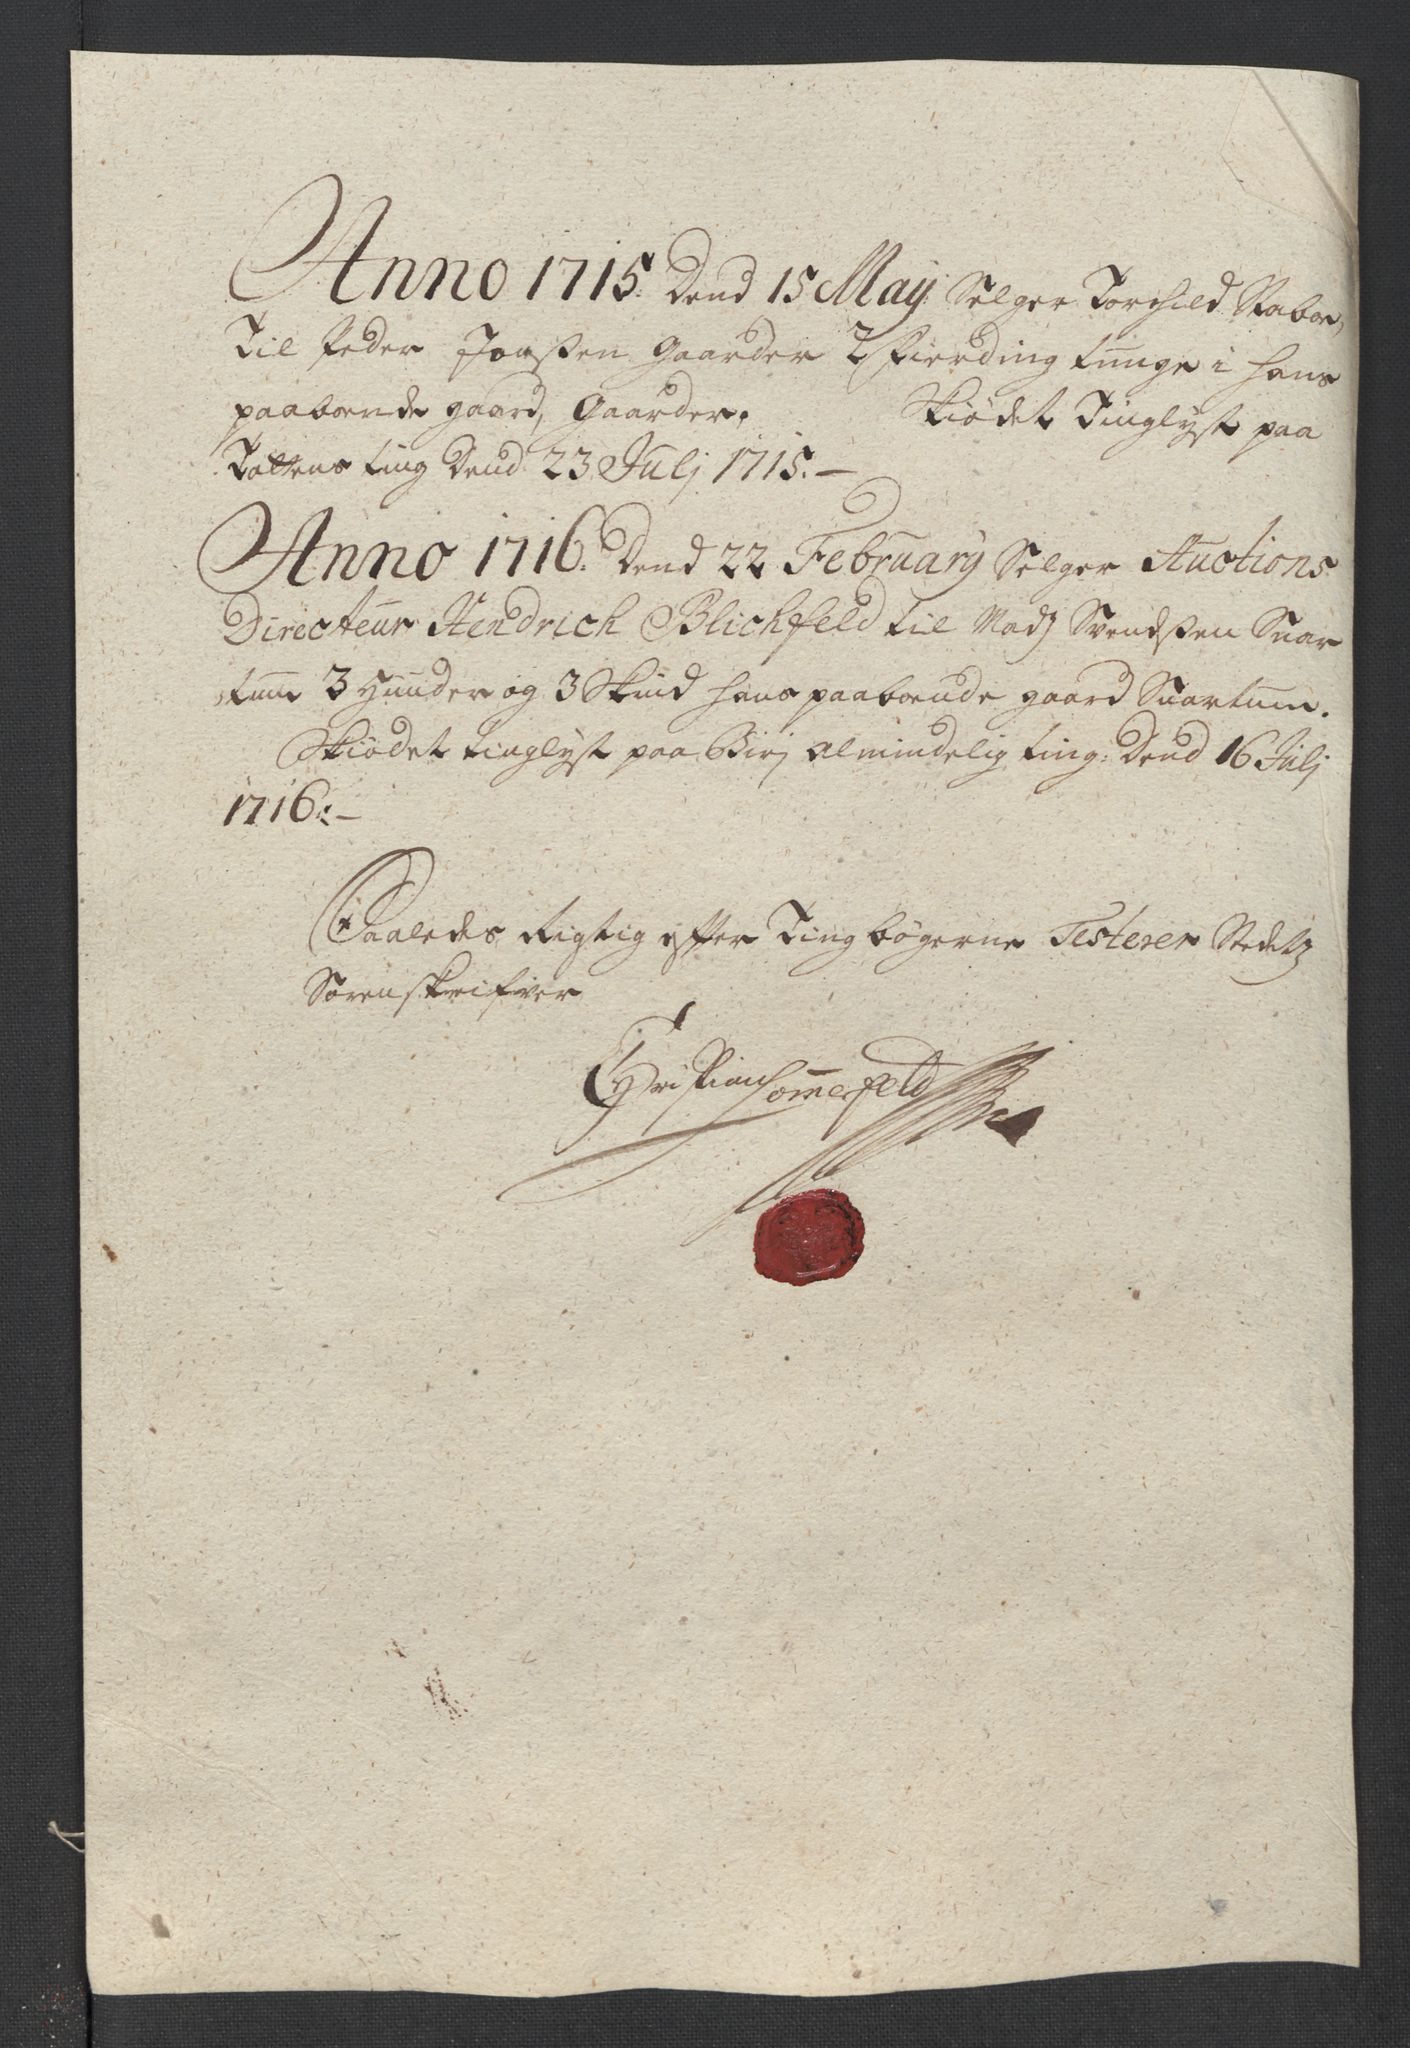 Anno 1715. Dend 15 May: Selger Torchild Staboe,
Til Peder Joenßen Gaarder 2 Fierding tunge i hans
paaboende gaard, Gaarder. Skiødet Tinglyst paa
Tottens ting Dend 23 Julj 1715.—
Anno 1716. Dend 22 February Selger Auctions
Directeur Hendrich Blichfeld til Madz Svendßen Suar
tum 3 Hunder og 3 Skind hans paaboende gaard Suartum.
Skiødet tinglyst paa Birj almindelig ting: Dend 16 Julj
1716:—
Saaledes Rigtig efter Tingbøgerne Testerer Stedetz
Sorenskrifver
Christian Somerfeld